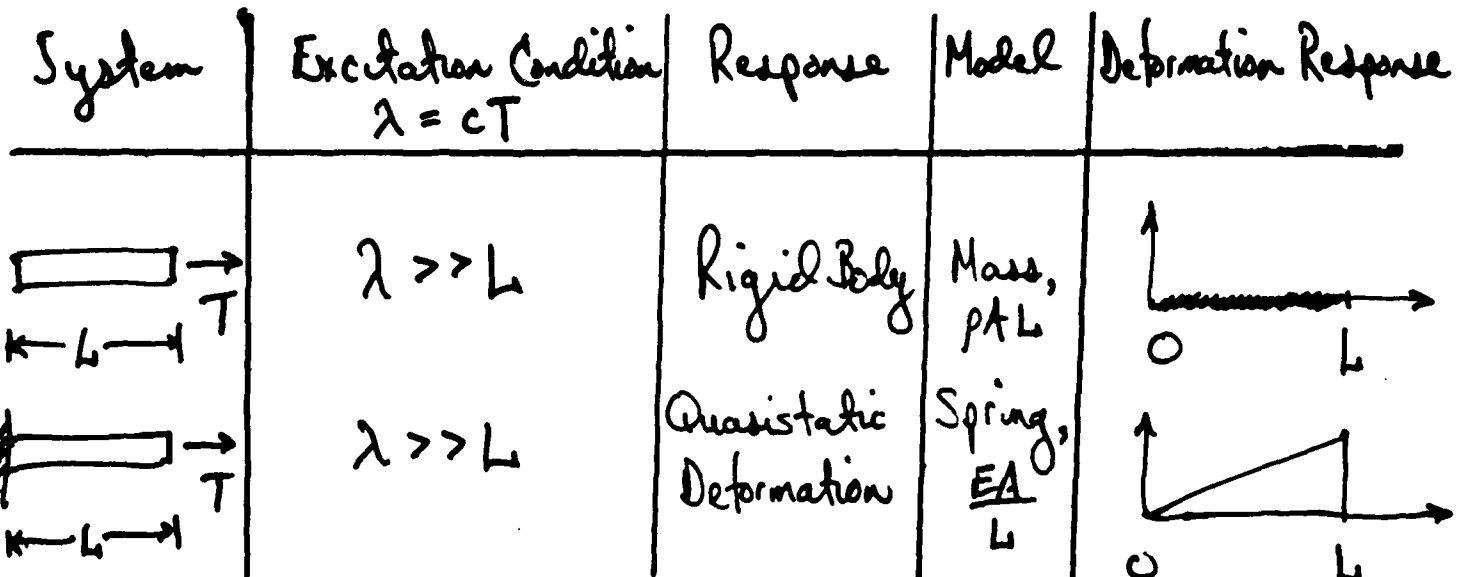 System | Excitation Condition | Response | Model | Deformation Response
λ = cT
T | λ >> L | Rigid Body | Mass,
ρAL
L | O | L
T | λ >> L | Quasistatic | Spring,
Deformation | EA
L
L | O | L